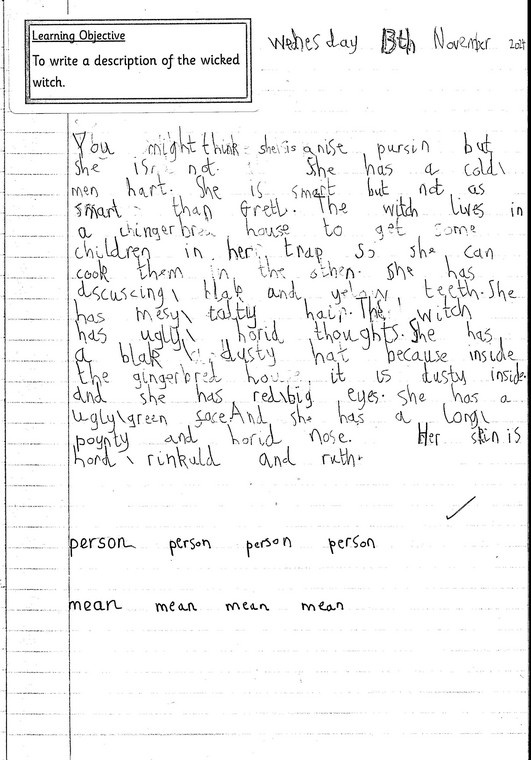 Learning Objective
To write a description of the wicked
witch.
Wednesday 13th November 2024
You might think she is a nise pursin but
she is not. She has a cold\
men hart. She is smart but not as
smart than Gretl. The witch lives in
a house to get some
children in her trap so she can
cook them in the othen. She has
dscuscing\ blak and yelow teeth. She
has mesy\ tatty hair. The witch
has ugly\ horid thoughts. She has
a blak \ dusty hat because inside
the gingerbred house it is dusty inside.
And she has red\big eyes. She has a
ugly\green face. And she has a long\
poynty and horid nose. Her skin is
hord \ rinkuld and ruth.
person person person person
mean mean mean mean